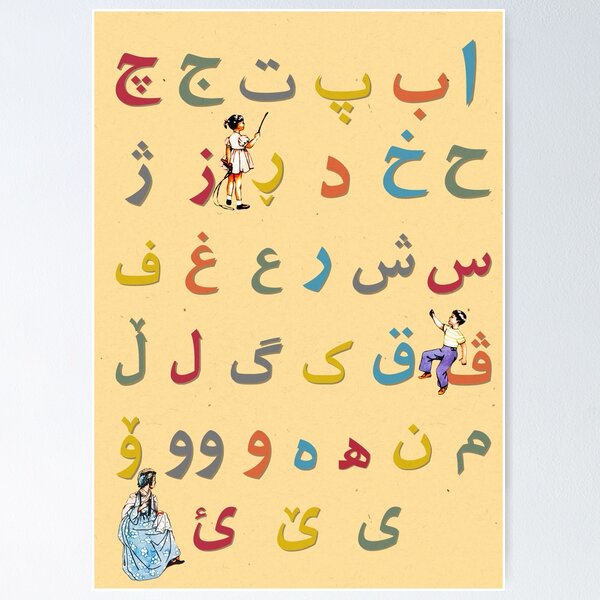 ا ب پ ت ج چ
ح خ د ڕ ز ژ
س ش ر ع غ ف
ڤ ق ک گ ل ڵ
م ن ھ ە و وو ۆ
ی ێ ئ